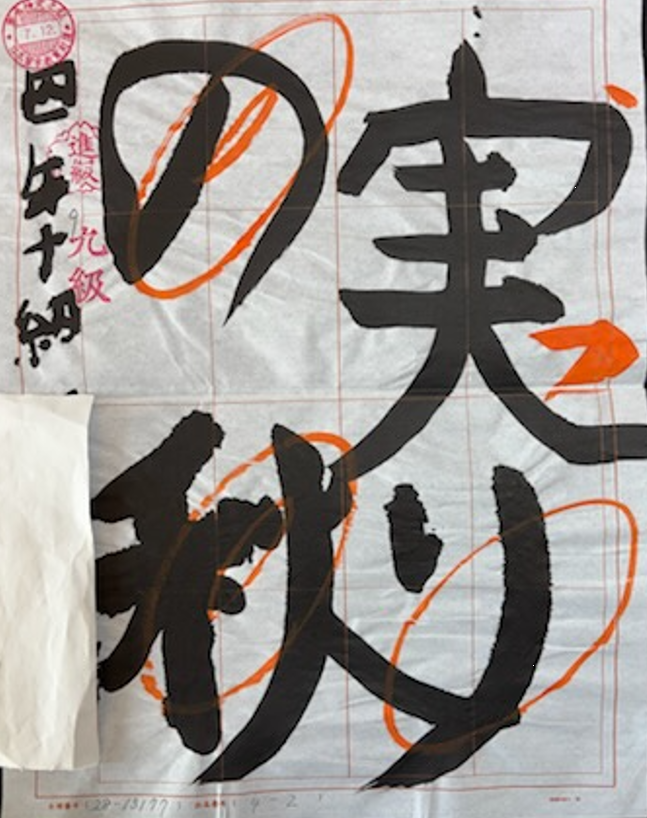 実り
の秋
四年十組
進級
九級
7.12.
28-13177
4-2